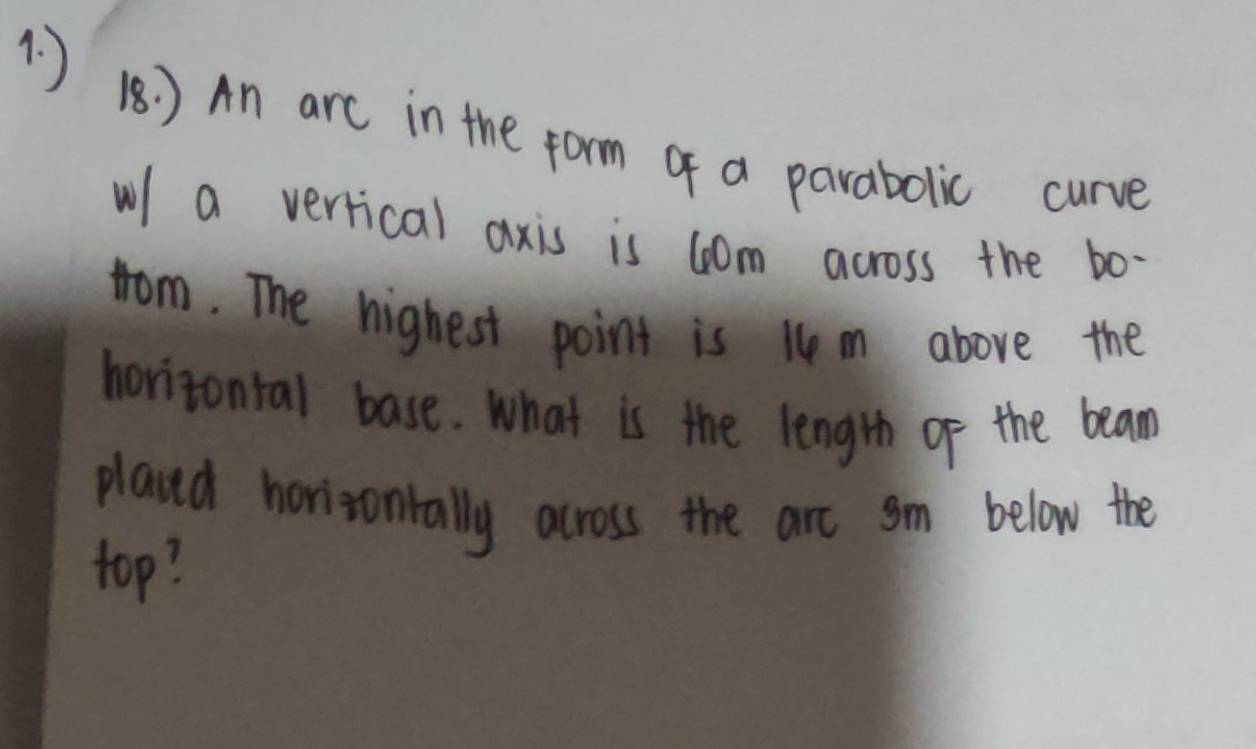 1.)
18.) An arc in the form of a parabolic curve
w/ a vertical axis is 60m across the bo-
ttom. The highest point is 16 m above the
horizontal base. What is the length of the beam
placed horizontally across the arc 3m below the
top?